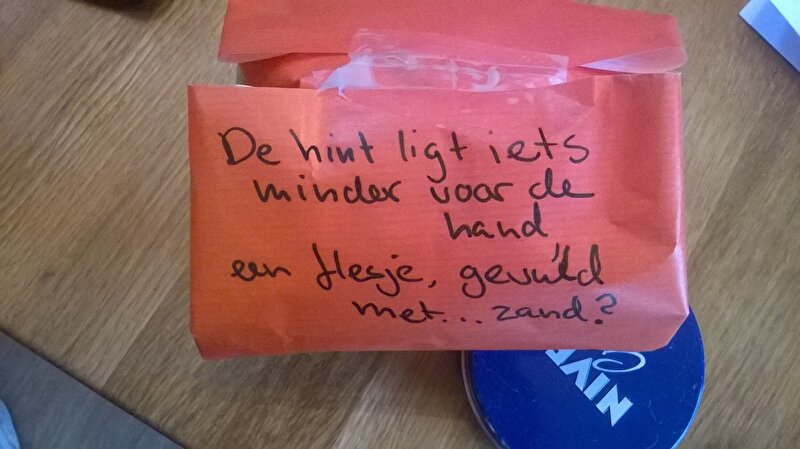 De hint ligt iets
minder voor de
hand
een flesje, gevuld
met... zand?
NIVE
C